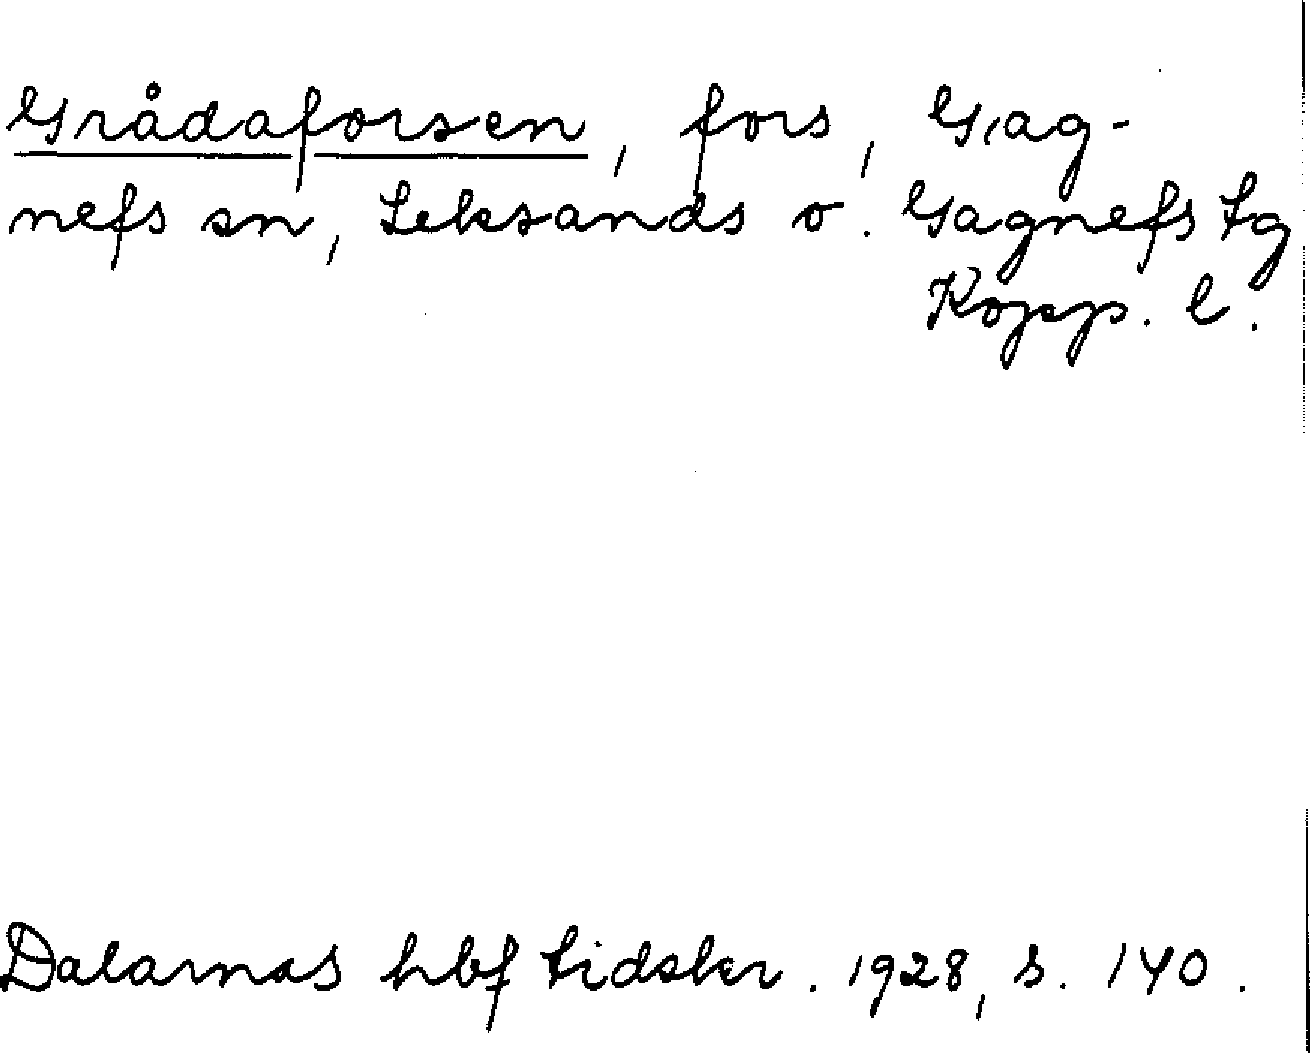 Grådaforsen, fors, Gag-
nefs sn, Leksands o. Gagnefs tg
Kopp. l.
Dalarnas hbf tidskr. 1928, s. 140.